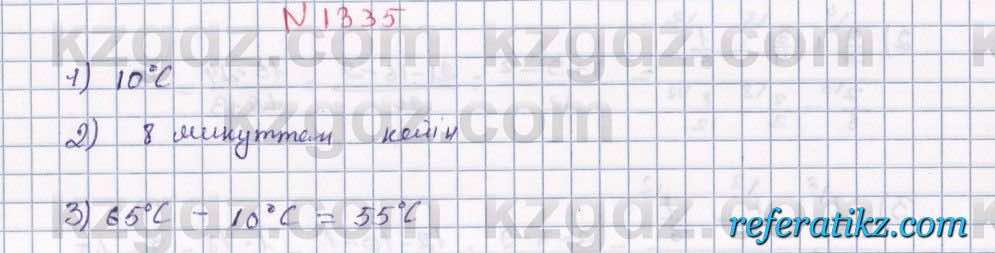 N 1335
kzgdz.com kzgdz.com
1) 10°C
kzgdz.com
2) 8 минуттан кейін
3) 65°C - 10°C = 55°C
kzgdz.com kzgdz.com
referatikz.com